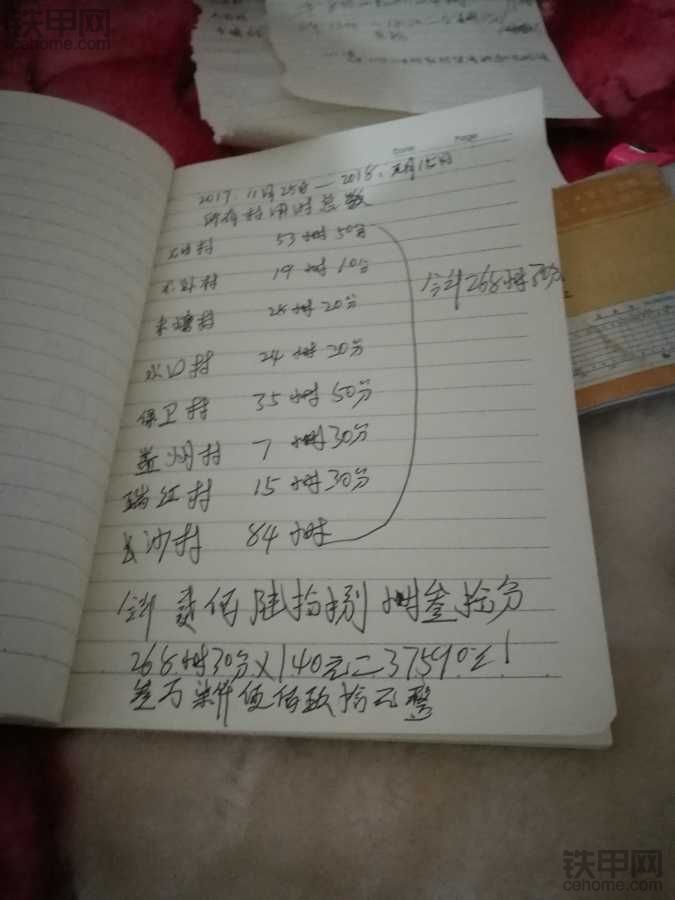 铁甲网
cehome.com
Date Page
2017.11月25日—2018.元月15日
所有村用时总数
村 53小时50分
村 19小时10分
村 28小时20分
水口村 24小时20分
保卫村 35小时50分
村 7小时30分
瑞红村 15小时30分
长沙村 84小时
合计268小时30分
合计贰佰陆拾捌小时叁拾分
268小时30分×140元=37590元!
叁万柒仟伍佰玖拾元整
铁甲网
cehome.com